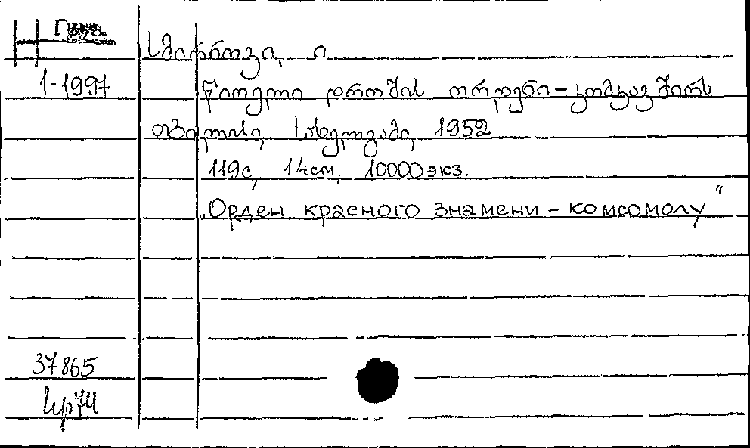 Груз.
სმირნოვი, ი
1-1997
წითელი დროშის ორდენი-კომკავშირს
თბილისი, სახელგამი, 1952
119с, 14см, 10000экз.
„Орден красного знамени - комсомолу"
37865